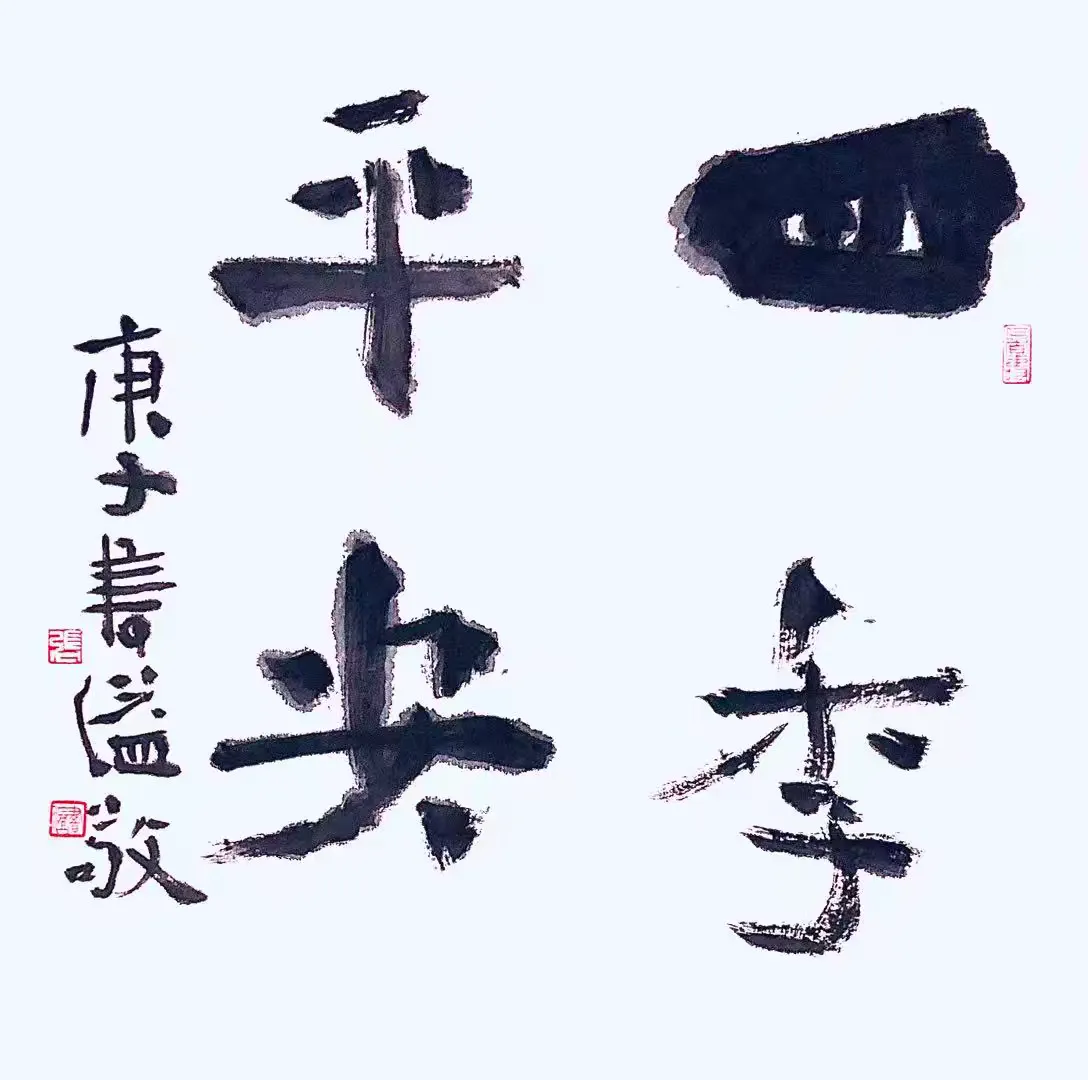 四季
平安
庚子書溢敬